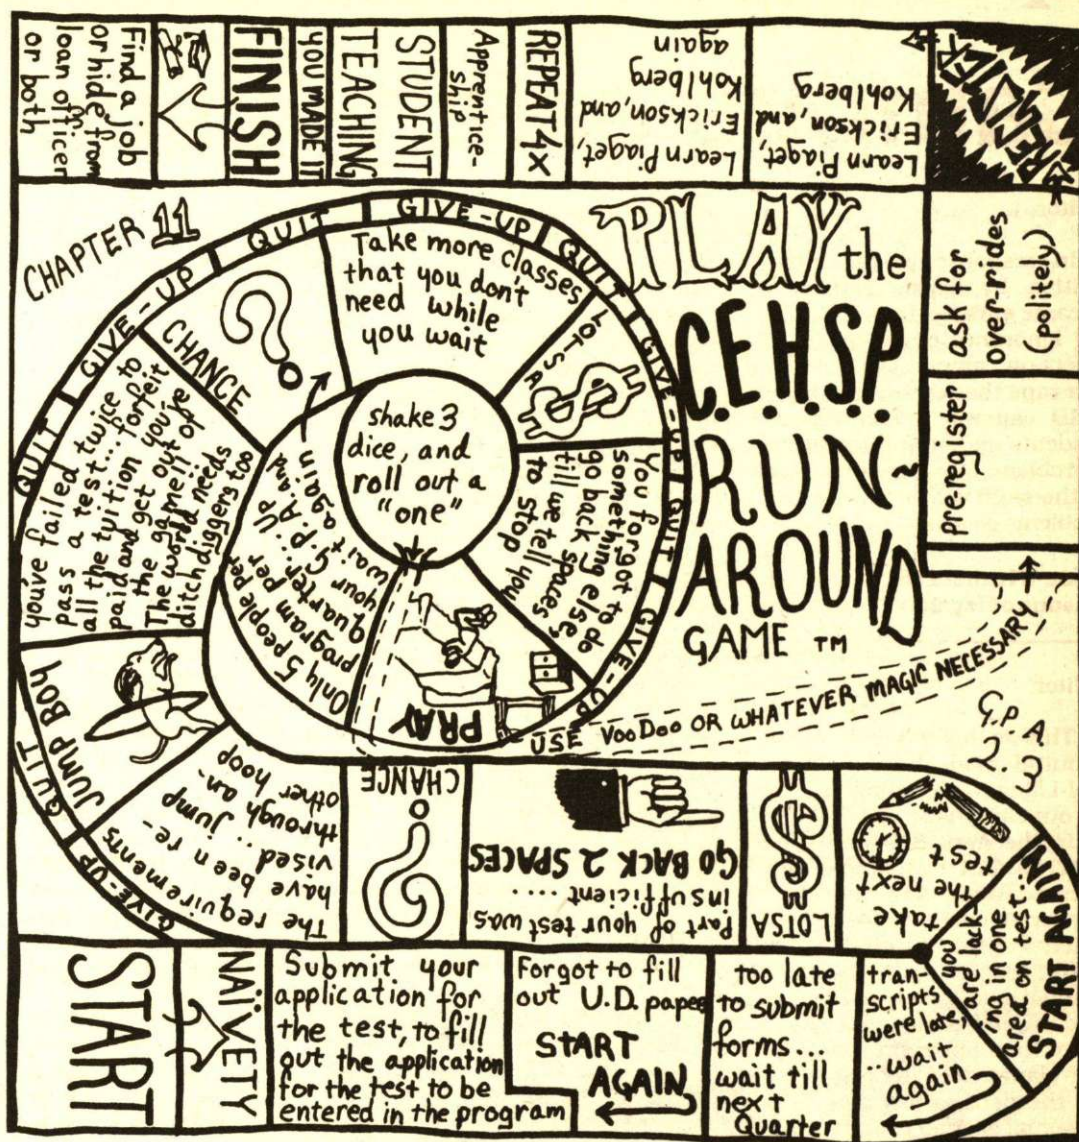 PLAY the
C.E.H.S.P.
RUN~
AROUND
GAME TM
START
NAÏVETY
Submit your
application for
the test, to fill
out the application
for the test to be
entered in the program
Forgot to fill
out U.D. papes
START
AGAIN
too late
to submit
forms...
wait till
next
Quarter
tran-
scripts
were late,
..wait
again
you
are lack-
ing in one
area on test...
START AGAIN
take
the next
test
G.P.A
2.3
LOTSA
$
Part of your test was
insufficient ....
GO BACK 2 SPACES
CHANCE
?
The requirements
have been re-
vised... jump
through an-
other hoop
JUMP BOY
you've failed twice to
pass a test... forfeit
all the tuition you've
paid and get out of
the game!!
The world needs
ditch diggers too
CHANCE
?
Take more classes
that you don't
need while
you wait
LOTSA
$
You forgot to do
something else,
go back spaces
till we tell you
to stop
PRAY
Only 5 people per
program per
quarter... UP
your G.P.A. and
wait again
shake 3
dice, and
roll out a
"one"
GIVE-UP
QUIT
GIVE-UP
QUIT
GIVE-UP
QUIT
GIVE-UP
QUIT
GIVE-UP
QUIT
GIVE-UP
CHAPTER 11
USE VOODOO OR WHATEVER MAGIC NECESSARY
pre-register
ask for
over-rides
(politely)
REGISTER
Learn Piaget,
Erickson, and
Kohlberg
Learn Piaget,
Erickson, and
Kohlberg
again
REPEAT 4x
Apprentice-
ship
STUDENT
TEACHING
you MADE IT
FINISH
Find a job
or hide from
loan officer
or both